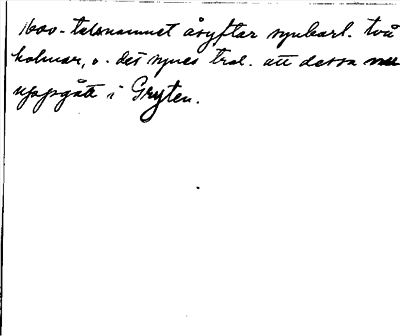 1600-talsnamnet åsyftar synbarl. två
holmar, o. det synes trol. att dessa nu
uppgått i Gryten.